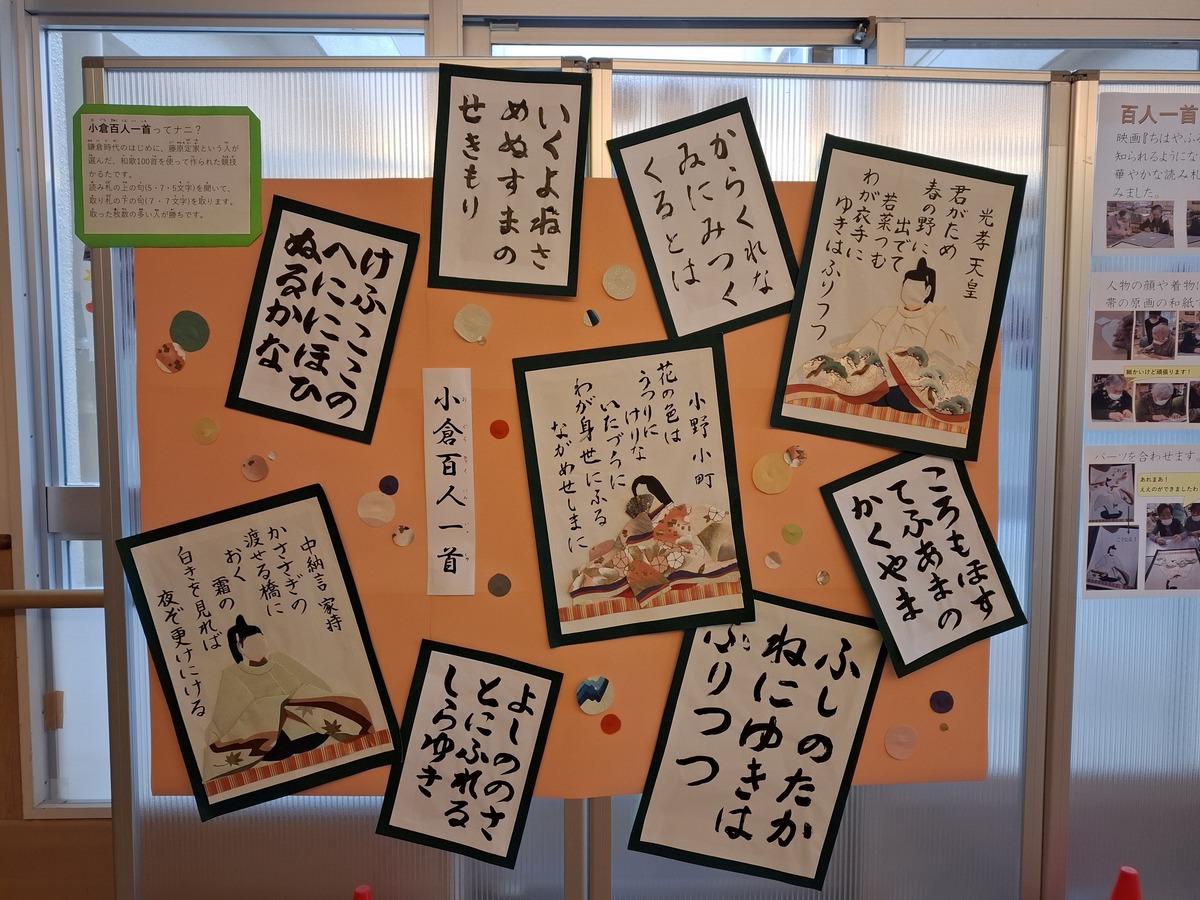 小倉百人一首ってナニ？
鎌倉時代のはじめに、藤原定家という人が
選んだ、和歌100首を使って作られた競技
かるたです。
読み札の上の句(5・7・5文字)を聞いて、
取り札の下の句(7・7文字)を取ります。
取った枚数の多い人が勝ちです。
いくよねさ
めぬすまの
せきもり
からくれな
ゐにみつく
くるとは
光孝天皇
君がため
春の野に
出でて
若菜つむ
わが衣手に
ゆきはふりつつ
けふここの
へににほひ
ぬるかな
小倉百人一首
小野小町
花の色は
うつりに
けりな
いたづらに
わが身世にふる
ながめせしまに
ころもほす
てふあまの
かくやま
中納言家持
かささぎの
渡せる橋に
おく霜の
白きを見れば
夜ぞ更けにける
よしののさ
とにふれる
しらゆき
ふしのたか
ねにゆきは
ふりつつ
百人一首
映画『ちはやふ
知られるようにな
華やかな読み札
みました。
人物の顔や着物に
帯の原画の和紙
細かいけど頑張ります！
パーツを合わせます。
あれまあ！
ええのができましたわ